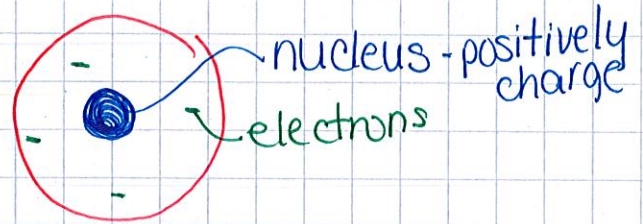 nucleus - positively
charge
electrons